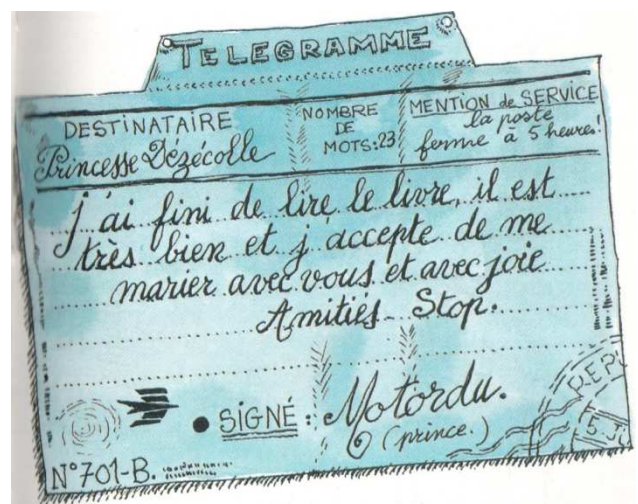 TELEGRAMME
DESTINATAIRE
Princesse Dézécolle
NOMBRE
DE
MOTS:23
MENTION de SERVICE
la poste
ferme à 5 heures!
j'ai fini de lire le livre, il est
très bien et j accepte de me
marier avec vous et avec joie
Amitiés Stop.
SIGNÉ : Motordu.
(prince.)
N°701-B.
REPU
5.J